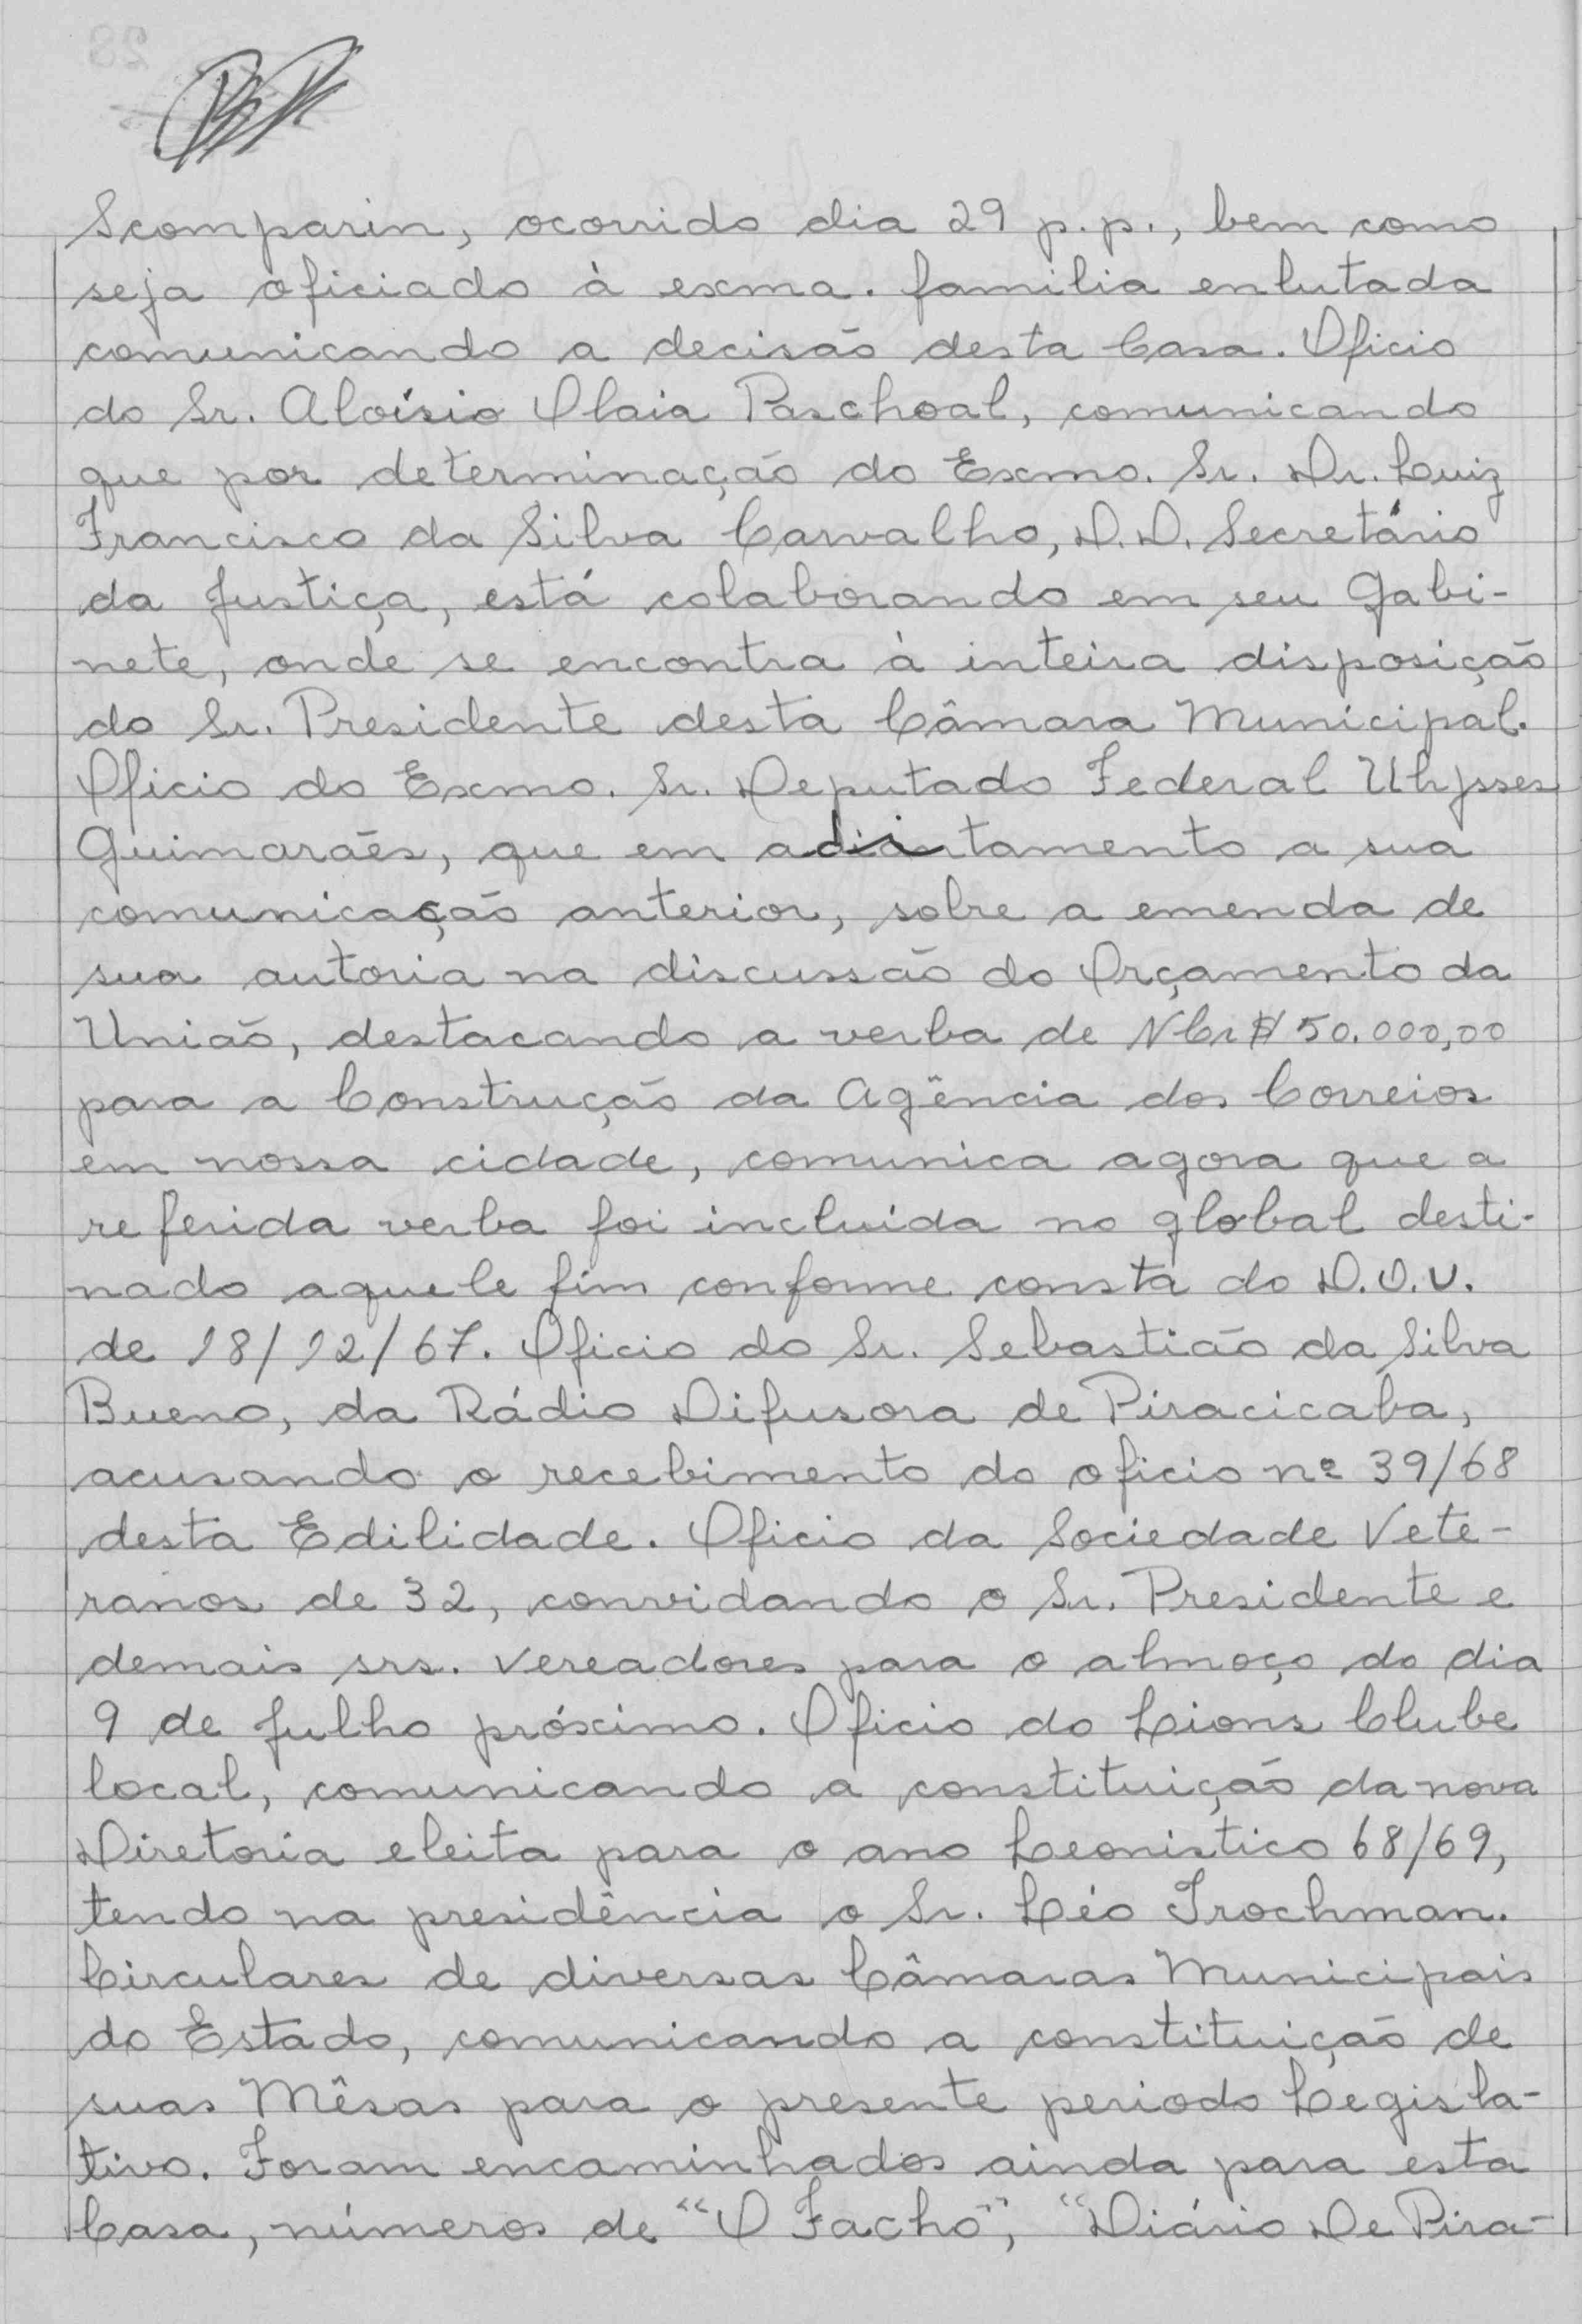 Scomparin, ocorrido dia 29 p.p., bem como
seja oficiado à exma. familia enlutada
comunicando a decisão desta Casa. Oficio
do Sr. Aloísio Olaia Paschoal, comunicando
que por determinação do Exmo. Sr. Dr. Luiz
Francisco da Silva Carvalho, D.D. Secretário
da Justiça, está colaborando em seu Gabi-
nete, onde se encontra à inteira disposição
do Sr. Presidente desta Câmara Municipal.
Oficio do Exmo. Sr. Deputado Federal Ulysses
Guimarães, que em adiantamento a sua
comunicação anterior, sobre a emenda de
sua autoria na discussão do Orçamento da
União, destacando a verba de NCr$ 50.000,00
para a Construção da Agência dos Correios
em nossa cidade, comunica agora que a
referida verba foi incluida no global desti-
nado aquele fim conforme consta do D.O.U.
de 18/12/67. Oficio do Sr. Sebastião da Silva
Bueno, da Rádio Difusora de Piracicaba,
acusando o recebimento do oficio nº 39/68
desta Edilidade. Oficio da Sociedade Vete-
ranos de 32, convidando o Sr. Presidente e
demais srs. vereadores para o almoço do dia
9 de Julho próximo. Oficio do Lions Clube
local, comunicando a constituição da nova
Diretoria eleita para o ano Leonistico 68/69,
tendo na presidência o Sr. Léo Trochman.
Circulares de diversas Câmaras Municipais
do Estado, comunicando a constituição de
suas Mêsas para o presente periodo Legisla-
tivo. Foram encaminhados ainda para esta
Casa, números de "O Facho", "Diário De Pira-